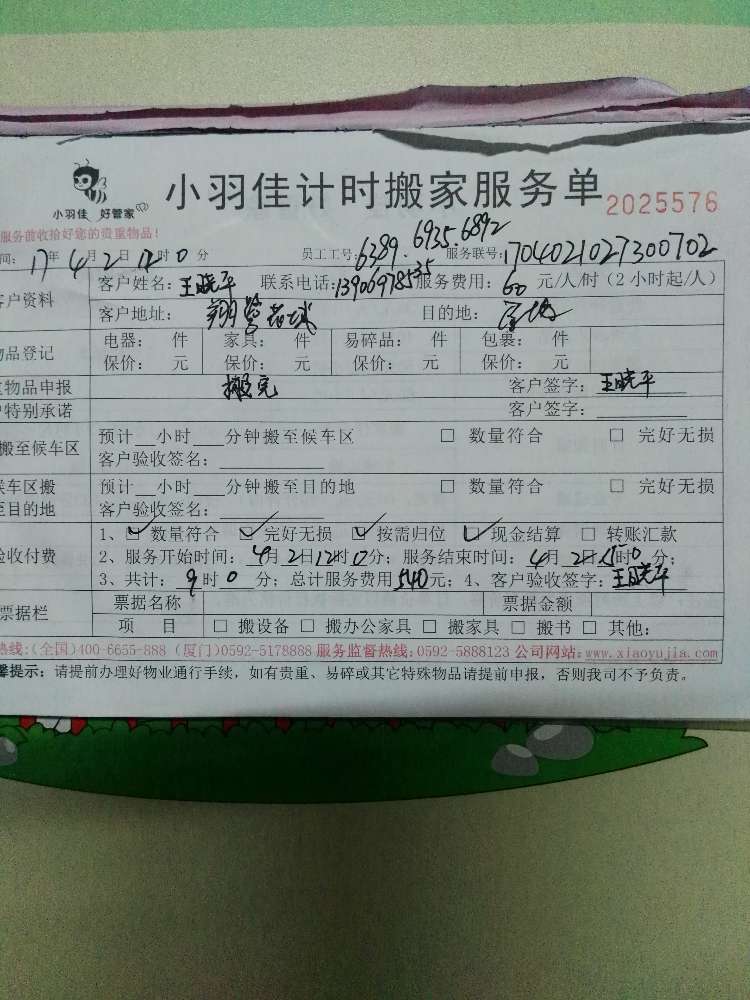 小羽佳计时搬家服务单 2025576
小羽佳 好管家
服务前收拾好您的贵重物品！
间：17年4月2日12时0分 员工工号：6389.6935.6892 服务联号：1704021027300702
客户资料 客户姓名：王晓平 联系电话：13906978535 服务费用：60 元/人/时（2小时起/人）
客户地址： 目的地：
物品登记 电器： 件 家具： 件 易碎品： 件 包裹： 件
保价： 元 保价： 元 保价： 元 保价： 元
物品申报 搬完 客户签字：王晓平
户特别承诺 客户签字：
搬至候车区 预计__小时___分钟搬至候车区 □ 数量符合 □ 完好无损
客户验收签名：
候车区搬至目的地 预计__小时___分钟搬至目的地 □ 数量符合 □ 完好无损
客户验收签名：
验收付费 1、☑ 数量符合 ☑ 完好无损 ☑ 按需归位 ☑ 现金结算 □ 转账汇款
2、服务开始时间：4月2日12时0分；服务结束时间：4月2日15时0分；
3、共计：9时0分；总计服务费用540元；4、客户验收签字：王晓平
票据栏 票据名称 票据金额
项 目 □ 搬设备 □ 搬办公家具 □ 搬家具 □ 搬书 □ 其他：
热线:(全国)400-6655-888 (厦门)0592-5178888 服务监督热线:0592-5888123 公司网站:www.xiaoyujia.com
馨提示：请提前办理好物业通行手续，如有贵重、易碎或其它特殊物品请提前申报，否则我司不予负责。